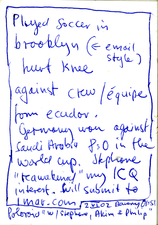 Played soccer in
brooklyn (← email
style)
hurt knee
against crew / équipe
form ecudor.
Germany won against
Saudi Arabia 8:0 in the
world cup. Stephane
"reawakened" my ICQ
interest. Will submit to
1mar.com
Polaroid "w/ Stephane, Akim & Philip"